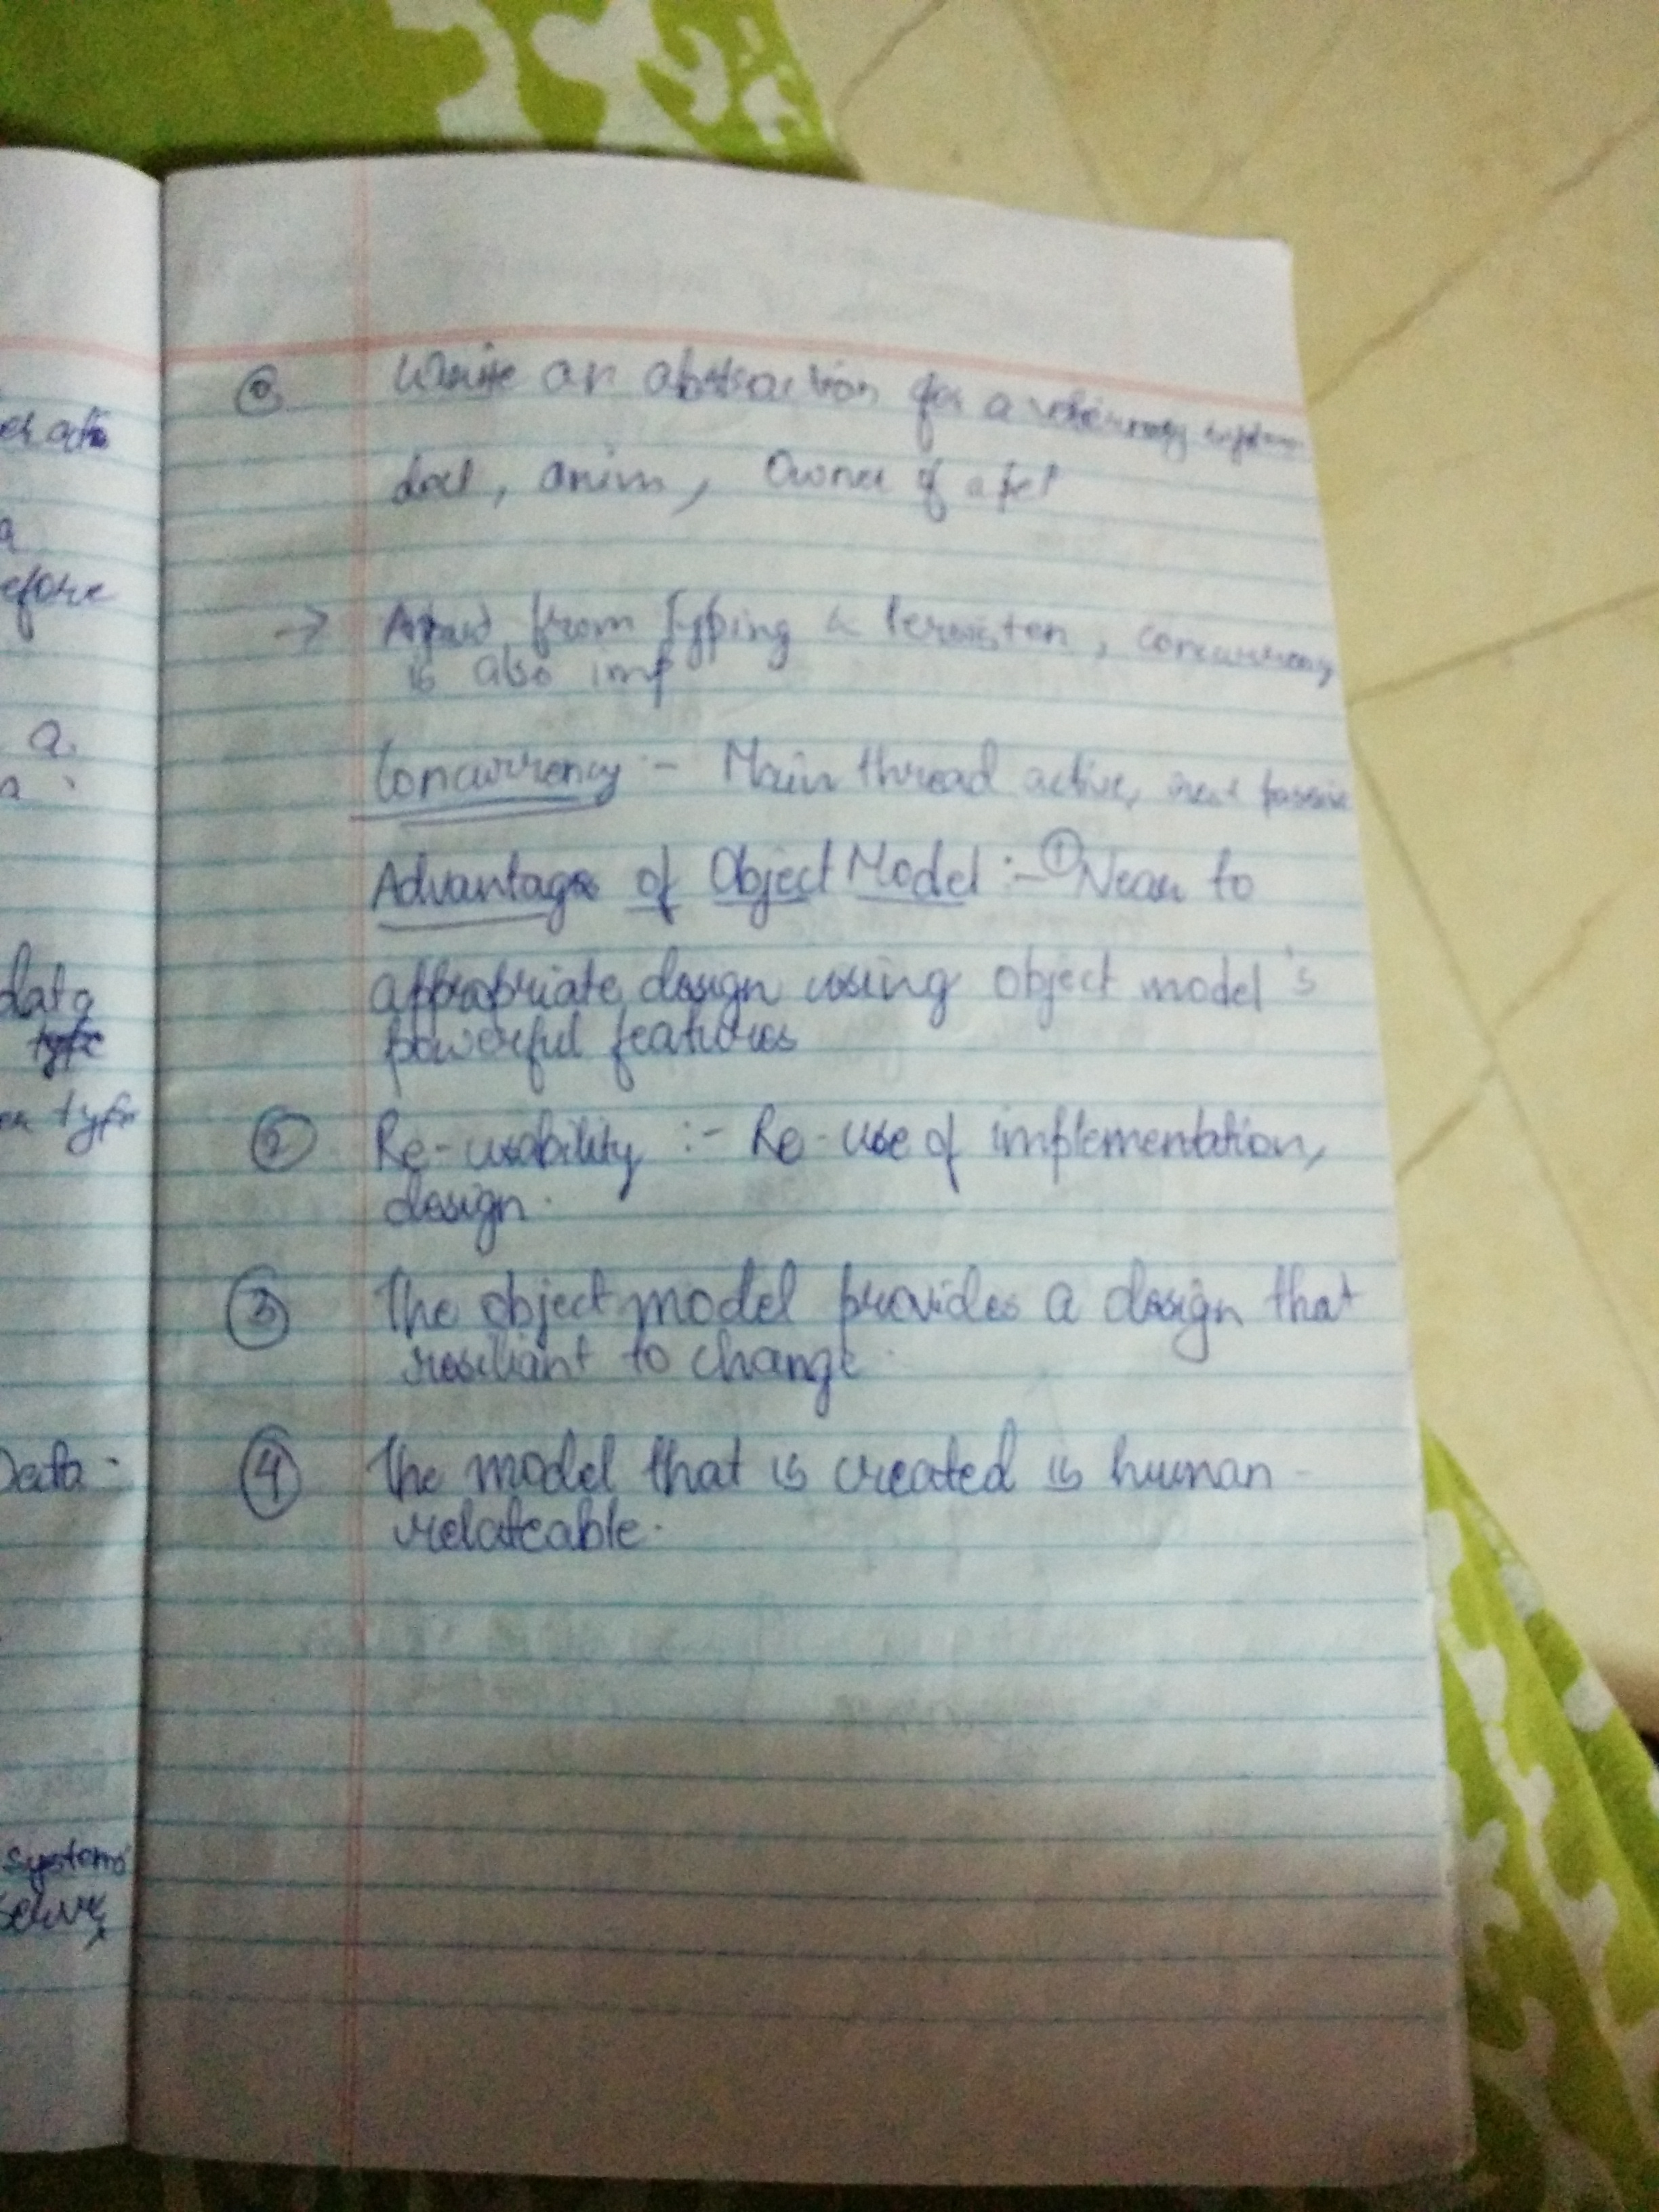 er
a
efore
a
data
type
typ
Data -
systems
serve,
Q Write an abstraction for a veterinary
doct, anim, Owner of a pet
→ Apart from Typing & Persisten, concurrency
is also imp
Concurrency :- Main thread active, next passive
Advantages of Object Model :- ① Near to
appropriate design using object model's
powerful features
② Re-usability :- Re-use of implementation,
design.
③ The object model provides a design that
resiliant to change.
④ The model that is created is human-
relateable.